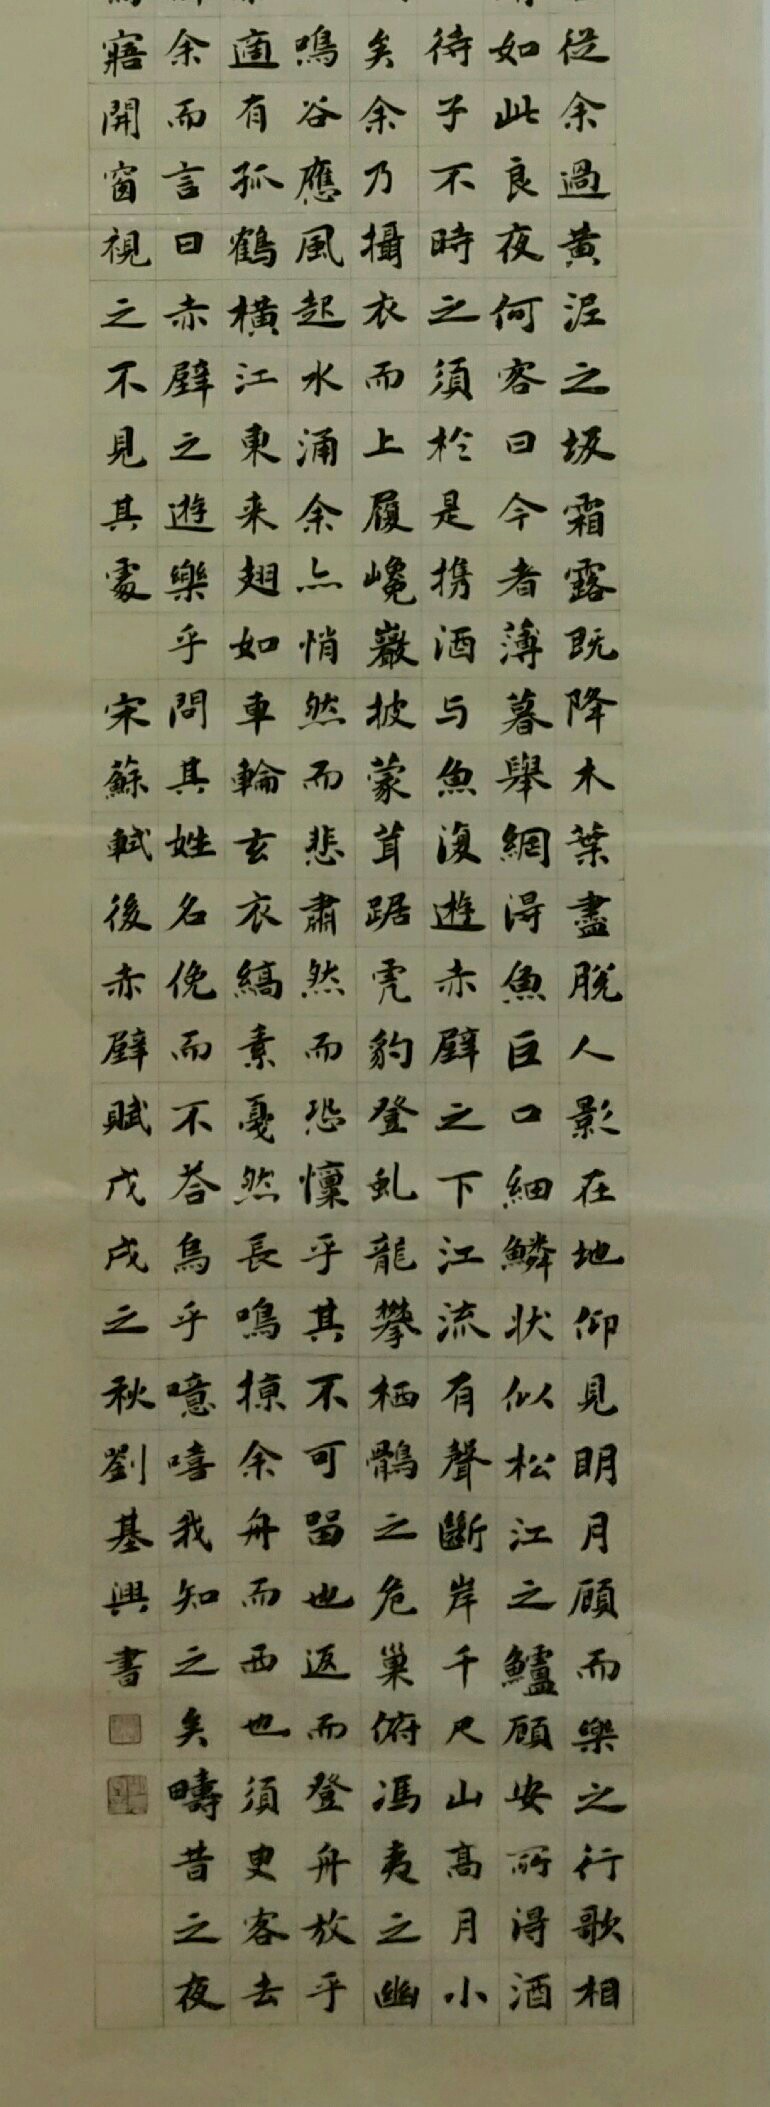 從余過黃泥之坂霜露既降木葉盡脫人影在地仰見明月顧而樂之行歌相
如此良夜何客曰今者薄暮舉網得魚巨口細鱗狀似松江之鱸顧安所得酒
待子不時之須於是攜酒与魚復遊赤壁之下江流有聲斷岸千尺山高月小
矣余乃攝衣而上履巉巖披蒙茸踞虎豹登虬龍攀栖鶻之危巢俯馮夷之幽
鳴谷應風起水涌余亦悄然而悲肅然而恐懍乎其不可留也返而登舟放乎
適有孤鶴橫江東来翅如車輪玄衣縞素戛然長鳴掠余舟而西也須臾客去
余而言曰赤壁之遊樂乎問其姓名俛而不答烏乎噫嘻我知之矣疇昔之夜
寤開窗視之不見其處 宋蘇軾後赤壁賦戊戌之秋劉基興書